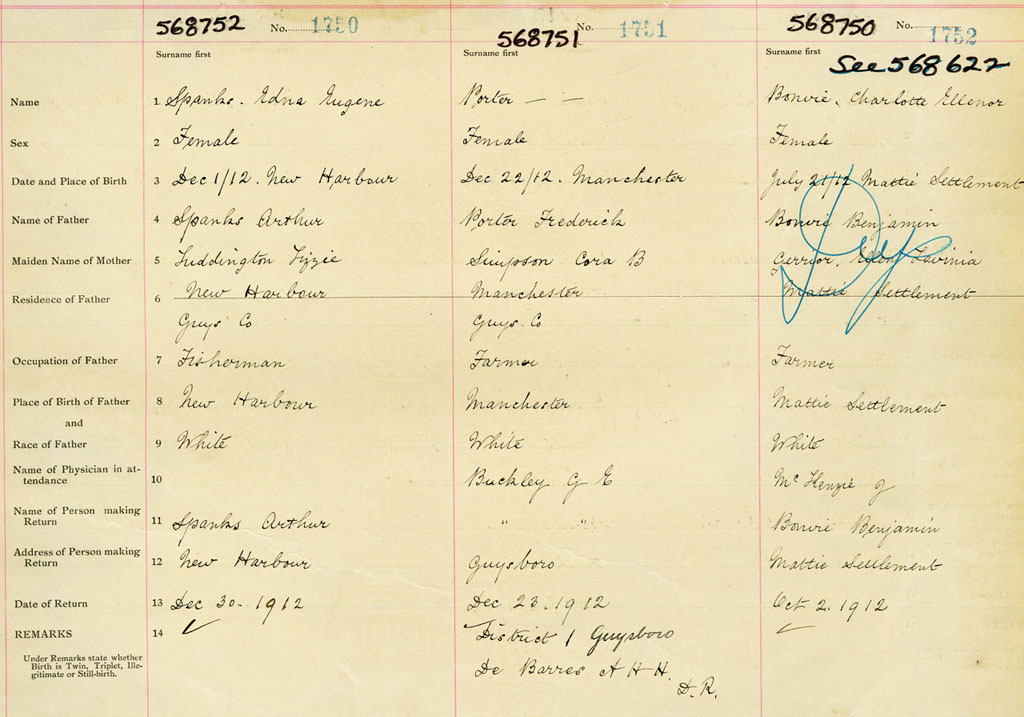 568752 No. 1750
568751 No. 1751
568750 No. 1752
Surname first
Surname first
Surname first
See 568622
Name 1 Spanks. Edna Eugene Porter — — Bonvie. Charlotte Ellenor
Sex 2 Female Female Female
Date and Place of Birth 3 Dec 1/12. New Harbour Dec 22/12. Manchester July 21/12 Mattie Settlement
Name of Father 4 Spanks Arthur Porter Frederick Bonvie Benjamin
Maiden Name of Mother 5 Luddington Lizzie Simpson Cora B Gerrior, Ellen Lavinia
Residence of Father 6 New Harbour Manchester Mattie Settlement
Guys Co Guys Co
Occupation of Father 7 Fisherman Farmer Farmer
Place of Birth of Father 8 New Harbour Manchester Mattie Settlement
and
Race of Father 9 White White White
Name of Physician in at-
tendance 10 Buckley G E McKenzie J
Name of Person making
Return 11 Spanks Arthur " " Bonvie Benjamin
Address of Person making
Return 12 New Harbour Guysboro Mattie Settlement
Date of Return 13 Dec 30. 1912 Dec 23. 1912 Oct 2. 1912
REMARKS 14 District 1 Guysboro
Under Remarks state whether
Birth is Twin, Triplet, Ille-
gitimate or Still-birth.
De Barres A H H.
D. R.